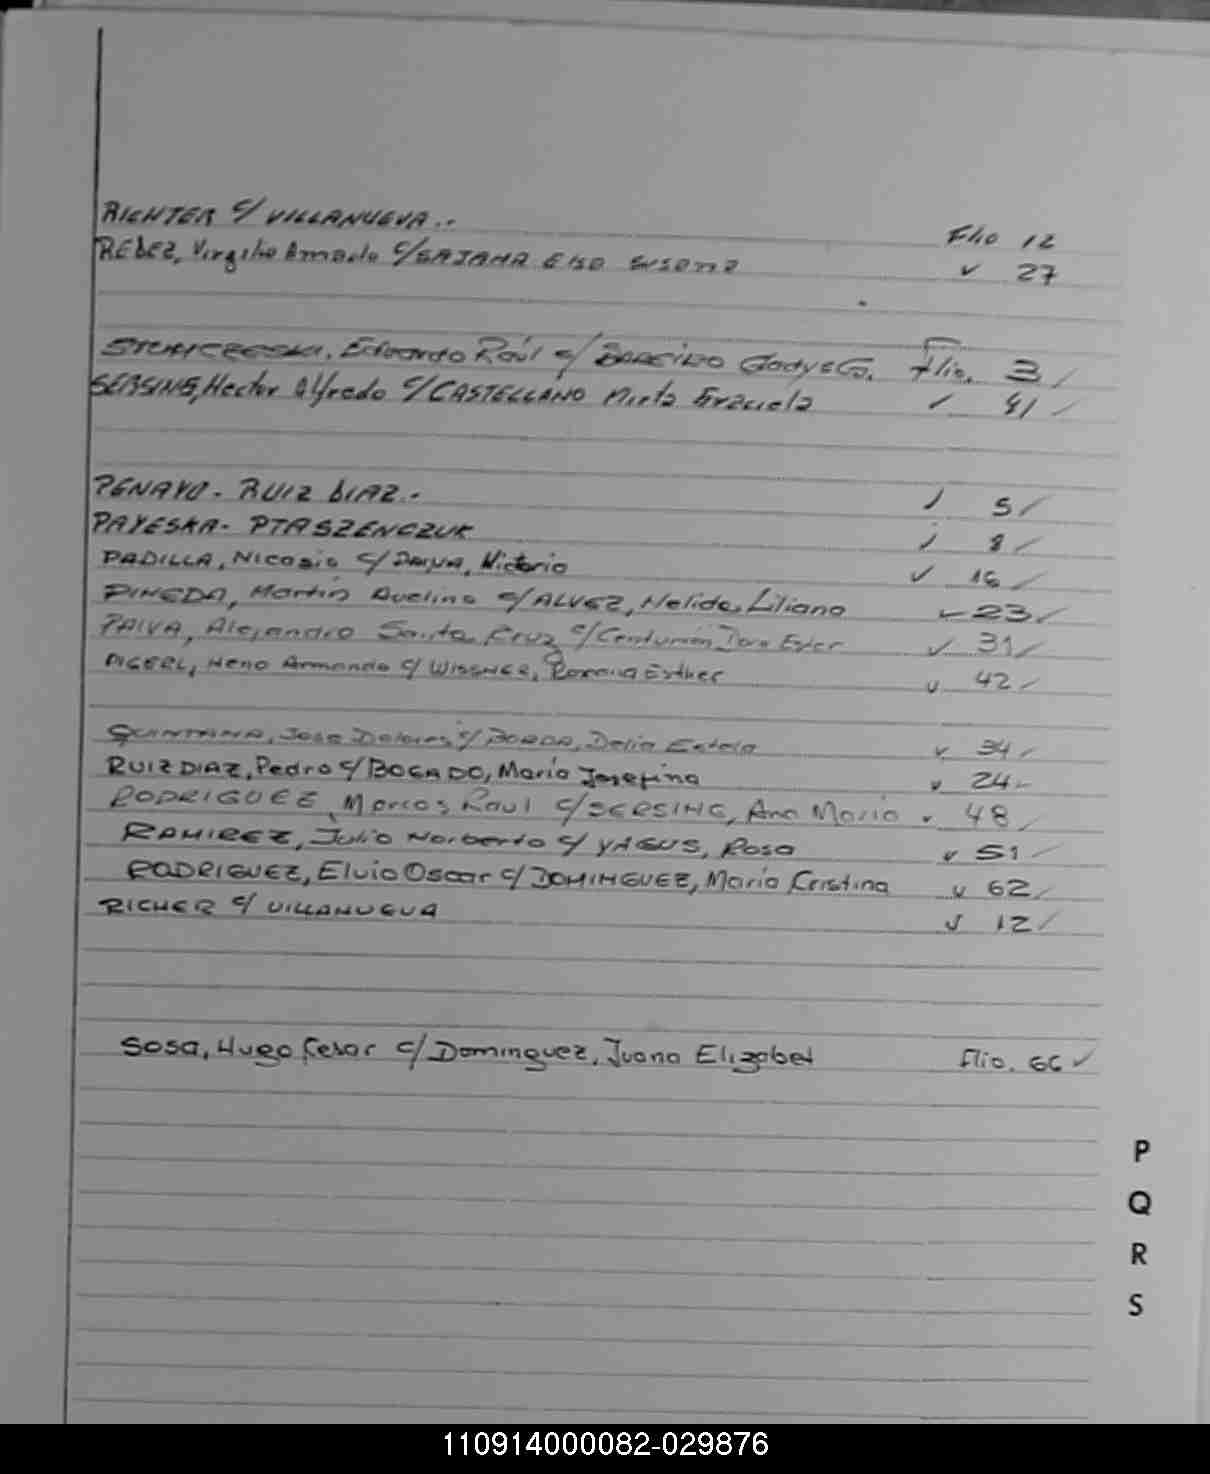 RICHTER c/ VILLANUEVA.- Flio 12
REBEZ, Virgilio Amado c/ SAJAMA Elsa Susana " 27
Eduardo Raúl c/ BAREIRO Gladys G. Flio. 3
SERSING, Hector Alfredo c/ CASTELLANO Mirta Graciela " 41
PENAYO - RUIZ DIAZ.- " 5
PAYESKA - PTASZENCZUK " 8
PADILLA, Nicasio c/ Victoria " 16
PINEDA, Martín Avelino c/ ALVEZ, Nelida Liliana " 23
PAIVA, Alejandro Santa Cruz c/ Centurión Dora Ester " 31
PIGERL, Neno Armando c/ WISSNER, Romina Esther " 42
QUINTANA, Jose Dolores c/ BORDA, Delia Estela " 34
RUIZ DIAZ, Pedro c/ BOGADO, María Josefina " 24
RODRIGUEZ, Marcos Raul c/ SERSING, Ana María " 48
RAMIREZ, Julio Norberto c/ YAGUS, Rosa " 51
RODRIGUEZ, Elvio Oscar c/ DOMINGUEZ, María Cristina " 62
RICHER c/ VILLANUEVA " 12
Sosa, Hugo Cesar c/ Dominguez, Juana Elizabet Flio. 66
P
Q
R
S
110914000082-029876